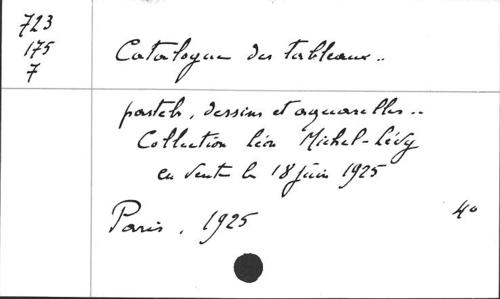 723
175
7
Catalogue des tableaux..
pastels, dessins et aquarelles..
Collection Léon Michel-Lévy
en vente le 18 juin 1925
Paris, 1925
4°